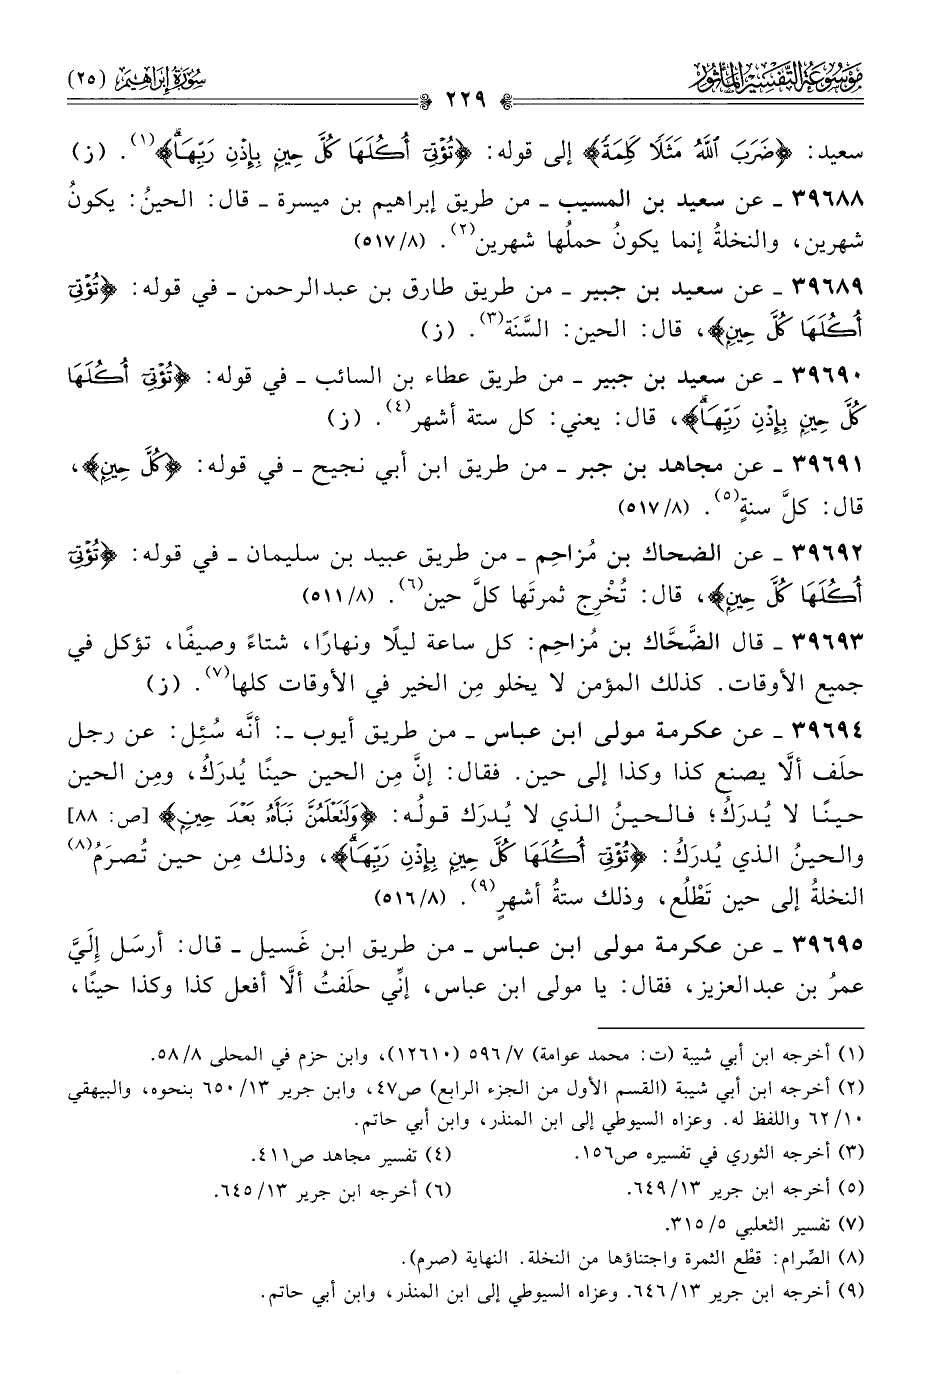 موسوعة التفسير المأثور
سورة إبراهيم (٢٥)
٢٢٩
سعيد: ﴿ضَرَبَ ٱللَّهُ مَثَلًا كَلِمَةً﴾ إلى قوله: ﴿تُؤْتِىٓ أُكُلَهَا كُلَّ حِينٍۭ بِإِذْنِ رَبِّهَاۗ﴾(١). (ز)
٣٩٦٨٨ ـ عن سعيد بن المسيب ـ من طريق إبراهيم بن ميسرة ـ قال: الحينُ: يكونُ
شهرين، والنخلةُ إنما يكونُ حملُها شهرين(٢). (٥١٧/٨)
٣٩٦٨٩ ـ عن سعيد بن جبير ـ من طريق طارق بن عبدالرحمن ـ في قوله: ﴿تُؤْتِىٓ
أُكُلَهَا كُلَّ حِينٍ﴾، قال: الحين: السَّنَة(٣). (ز)
٣٩٦٩٠ ـ عن سعيد بن جبير ـ من طريق عطاء بن السائب ـ في قوله: ﴿تُؤْتِىٓ أُكُلَهَا
كُلَّ حِينٍۭ بِإِذْنِ رَبِّهَاۗ﴾، قال: يعني: كل ستة أشهر(٤). (ز)
٣٩٦٩١ ـ عن مجاهد بن جبر ـ من طريق ابن أبي نجيح ـ في قوله: ﴿كُلَّ حِينٍ﴾،
قال: كلَّ سنةٍ(٥). (٥١٧/٨)
٣٩٦٩٢ ـ عن الضحاك بن مُزاحِم ـ من طريق عبيد بن سليمان ـ في قوله: ﴿تُؤْتِىٓ
أُكُلَهَا كُلَّ حِينٍ﴾، قال: تُخْرِج ثمرتَها كلَّ حين(٦). (٥١١/٨)
٣٩٦٩٣ ـ قال الضَّحَّاك بن مُزاحِم: كل ساعة ليلًا ونهارًا، شتاءً وصيفًا، تؤكل في
جميع الأوقات. كذلك المؤمن لا يخلو مِن الخير في الأوقات كلها(٧). (ز)
٣٩٦٩٤ ـ عن عكرمة مولى ابن عباس ـ من طريق أيوب ـ: أنَّه سُئِل: عن رجل
حلَف ألَّا يصنع كذا وكذا إلى حين. فقال: إنَّ مِن الحين حينًا يُدرَكُ، ومِن الحين
حينًا لا يُدرَكُ؛ فالحينُ الذي لا يُدرَك قولُه: ﴿وَلَتَعْلَمُنَّ نَبَأَهُۥ بَعْدَ حِينٍ﴾ [ص: ٨٨]
والحينُ الذي يُدرَكُ: ﴿تُؤْتِىٓ أُكُلَهَا كُلَّ حِينٍۭ بِإِذْنِ رَبِّهَاۗ﴾، وذلك مِن حين تُصرَمُ(٨)
النخلةُ إلى حين تَطْلُع، وذلك ستةُ أشهرٍ(٩). (٥١٦/٨)
٣٩٦٩٥ ـ عن عكرمة مولى ابن عباس ـ من طريق ابن غَسيل ـ قال: أرسَل إلَيَّ
عمرُ بن عبدالعزيز، فقال: يا مولى ابن عباس، إنِّي حلَفتُ ألَّا أفعل كذا وكذا حينًا،
(١) أخرجه ابن أبي شيبة (ت: محمد عوامة) ٥٩٦/٧ (١٢٦١٠)، وابن حزم في المحلى ٥٨/٨.
(٢) أخرجه ابن أبي شيبة (القسم الأول من الجزء الرابع) ص٤٧، وابن جرير ٦٥٠/١٣ بنحوه، والبيهقي
٦٢/١٠ واللفظ له. وعزاه السيوطي إلى ابن المنذر، وابن أبي حاتم.
(٣) أخرجه الثوري في تفسيره ص١٥٦. (٤) تفسير مجاهد ص٤١١.
(٥) أخرجه ابن جرير ٦٤٩/١٣. (٦) أخرجه ابن جرير ٦٤٥/١٣.
(٧) تفسير الثعلبي ٣١٥/٥.
(٨) الصِّرام: قطْع الثمرة واجتناؤها من النخلة. النهاية (صرم).
(٩) أخرجه ابن جرير ٦٤٦/١٣. وعزاه السيوطي إلى ابن المنذر، وابن أبي حاتم.